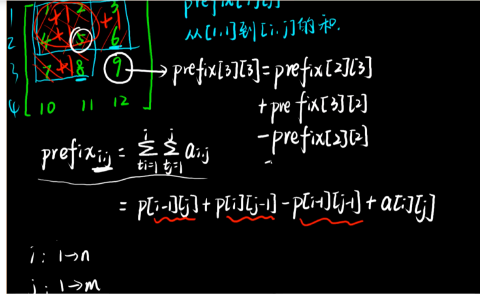 prefix[i][j]
从[1,1]到[i,j]的和.
1 2 3
+1 +1
2 4 5 6
3 7 +1 8 9 → prefix[3][3] = prefix[2][3]
+ prefix[3][2]
- prefix[2][2]
4 10 11 12
prefix i,j = Σ ti=1 i Σ tj=1 j ai,j
= p[i-1][j] + p[i][j-1] - p[i-1][j-1] + a[i][j]
i: 1→n
j: 1→m